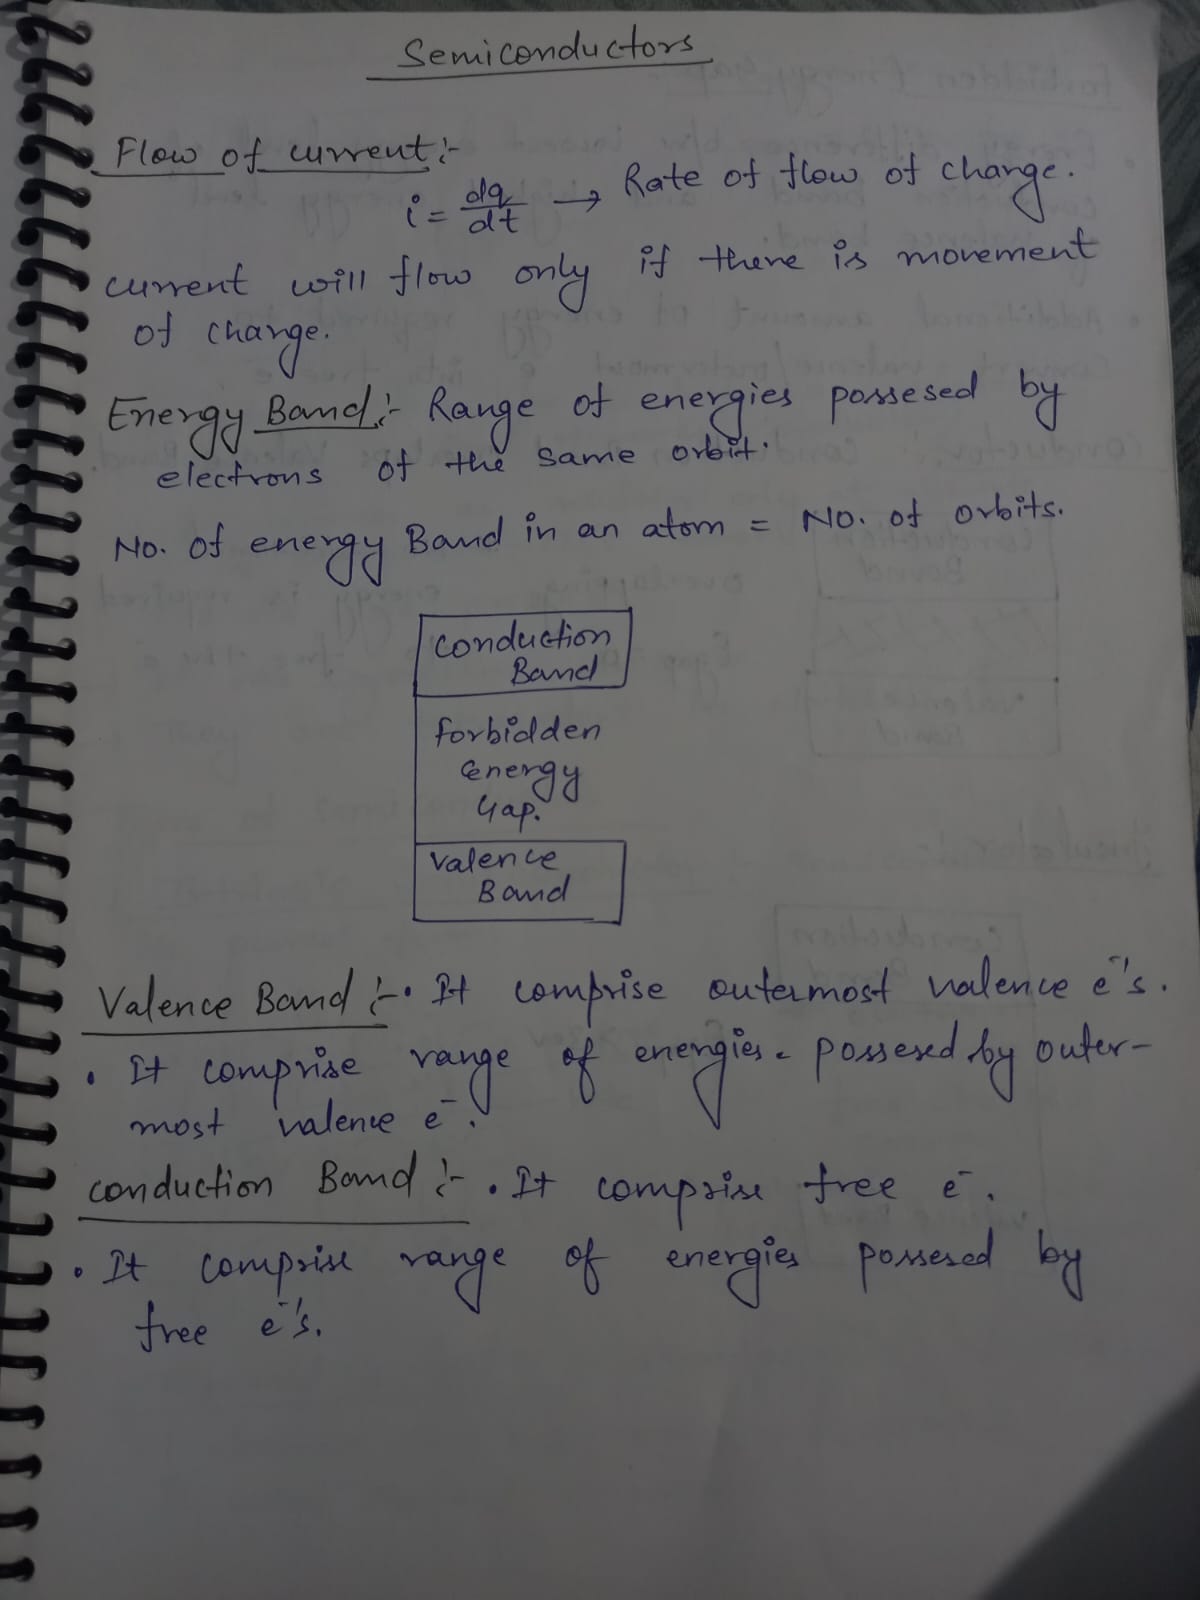 Semiconductors
Flow of current:-
i = dq/dt → Rate of flow of charge.
current will flow only if there is movement
of charge.
Energy Band:- Range of energies possesed by
electrons of the same orbit.
No. of energy Band in an atom = No. of orbits.
Conduction
Band
forbidden
energy
Gap.
Valence
Band
Valence Band:- • It comprise outermost valence e⁻'s.
• It comprise range of energies possesed by outer-
most valence e⁻.
conduction Band:- • It comprise free e⁻.
• It comprise range of energies possesed by
free e⁻'s.